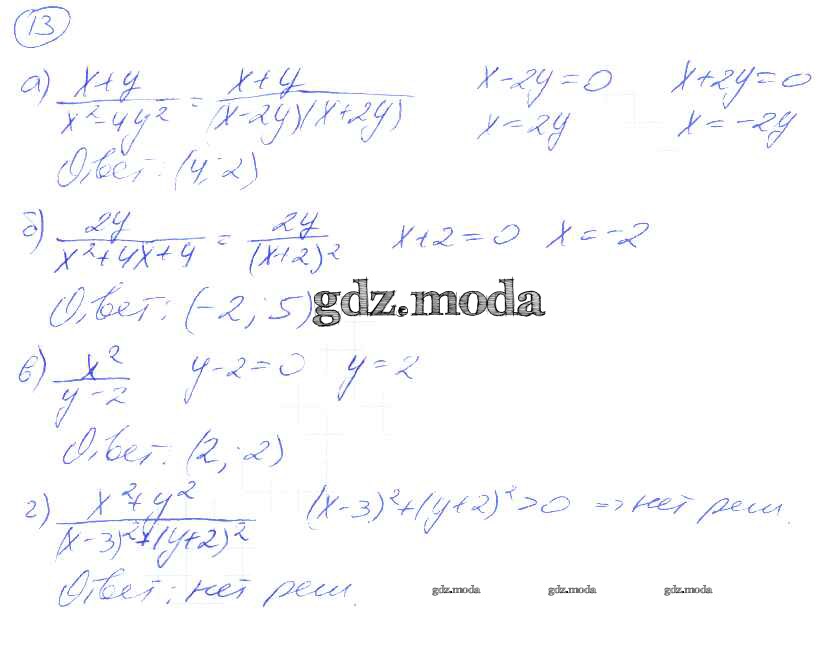 13
а) x+y / x²-4y² = x+y / (x-2y)(x+2y) x-2y=0 x+2y=0
x=2y x=-2y
Ответ: (4; 2)
б) 2y / x²+4x+4 = 2y / (x+2)² x+2=0 x=-2
Ответ: (-2; 5)
gdz.moda
в) x² / y-2 y-2=0 y=2
Ответ: (2; 2)
г) x²+y² / (x-3)²+(y+2)² (x-3)²+(y+2)²>0 => нет реш.
Ответ: нет реш.
gdz.moda gdz.moda gdz.moda